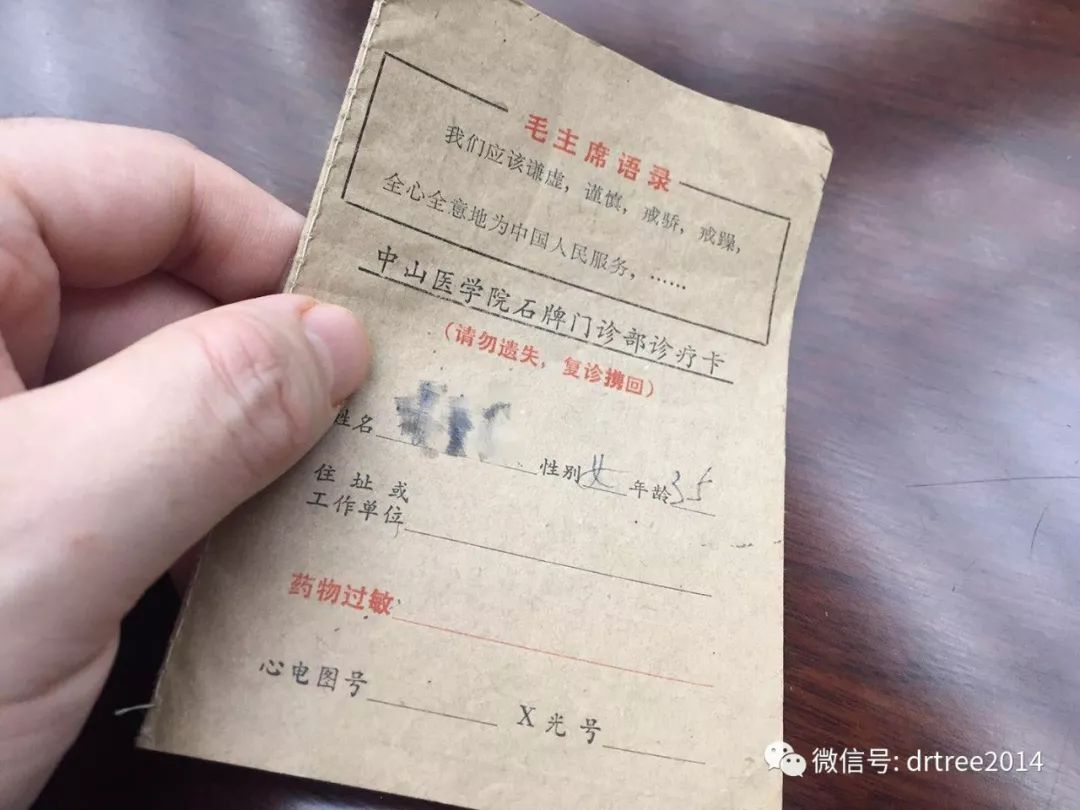 毛主席语录
我们应该谦虚，谨慎，戒骄，戒躁，
全心全意地为中国人民服务，……
中山医学院石牌门诊部诊疗卡
（请勿遗失，复诊携回）
姓名 性别 女 年龄 35
住址或
工作单位
药物过敏
心电图号 X光号
微信号: drtree2014